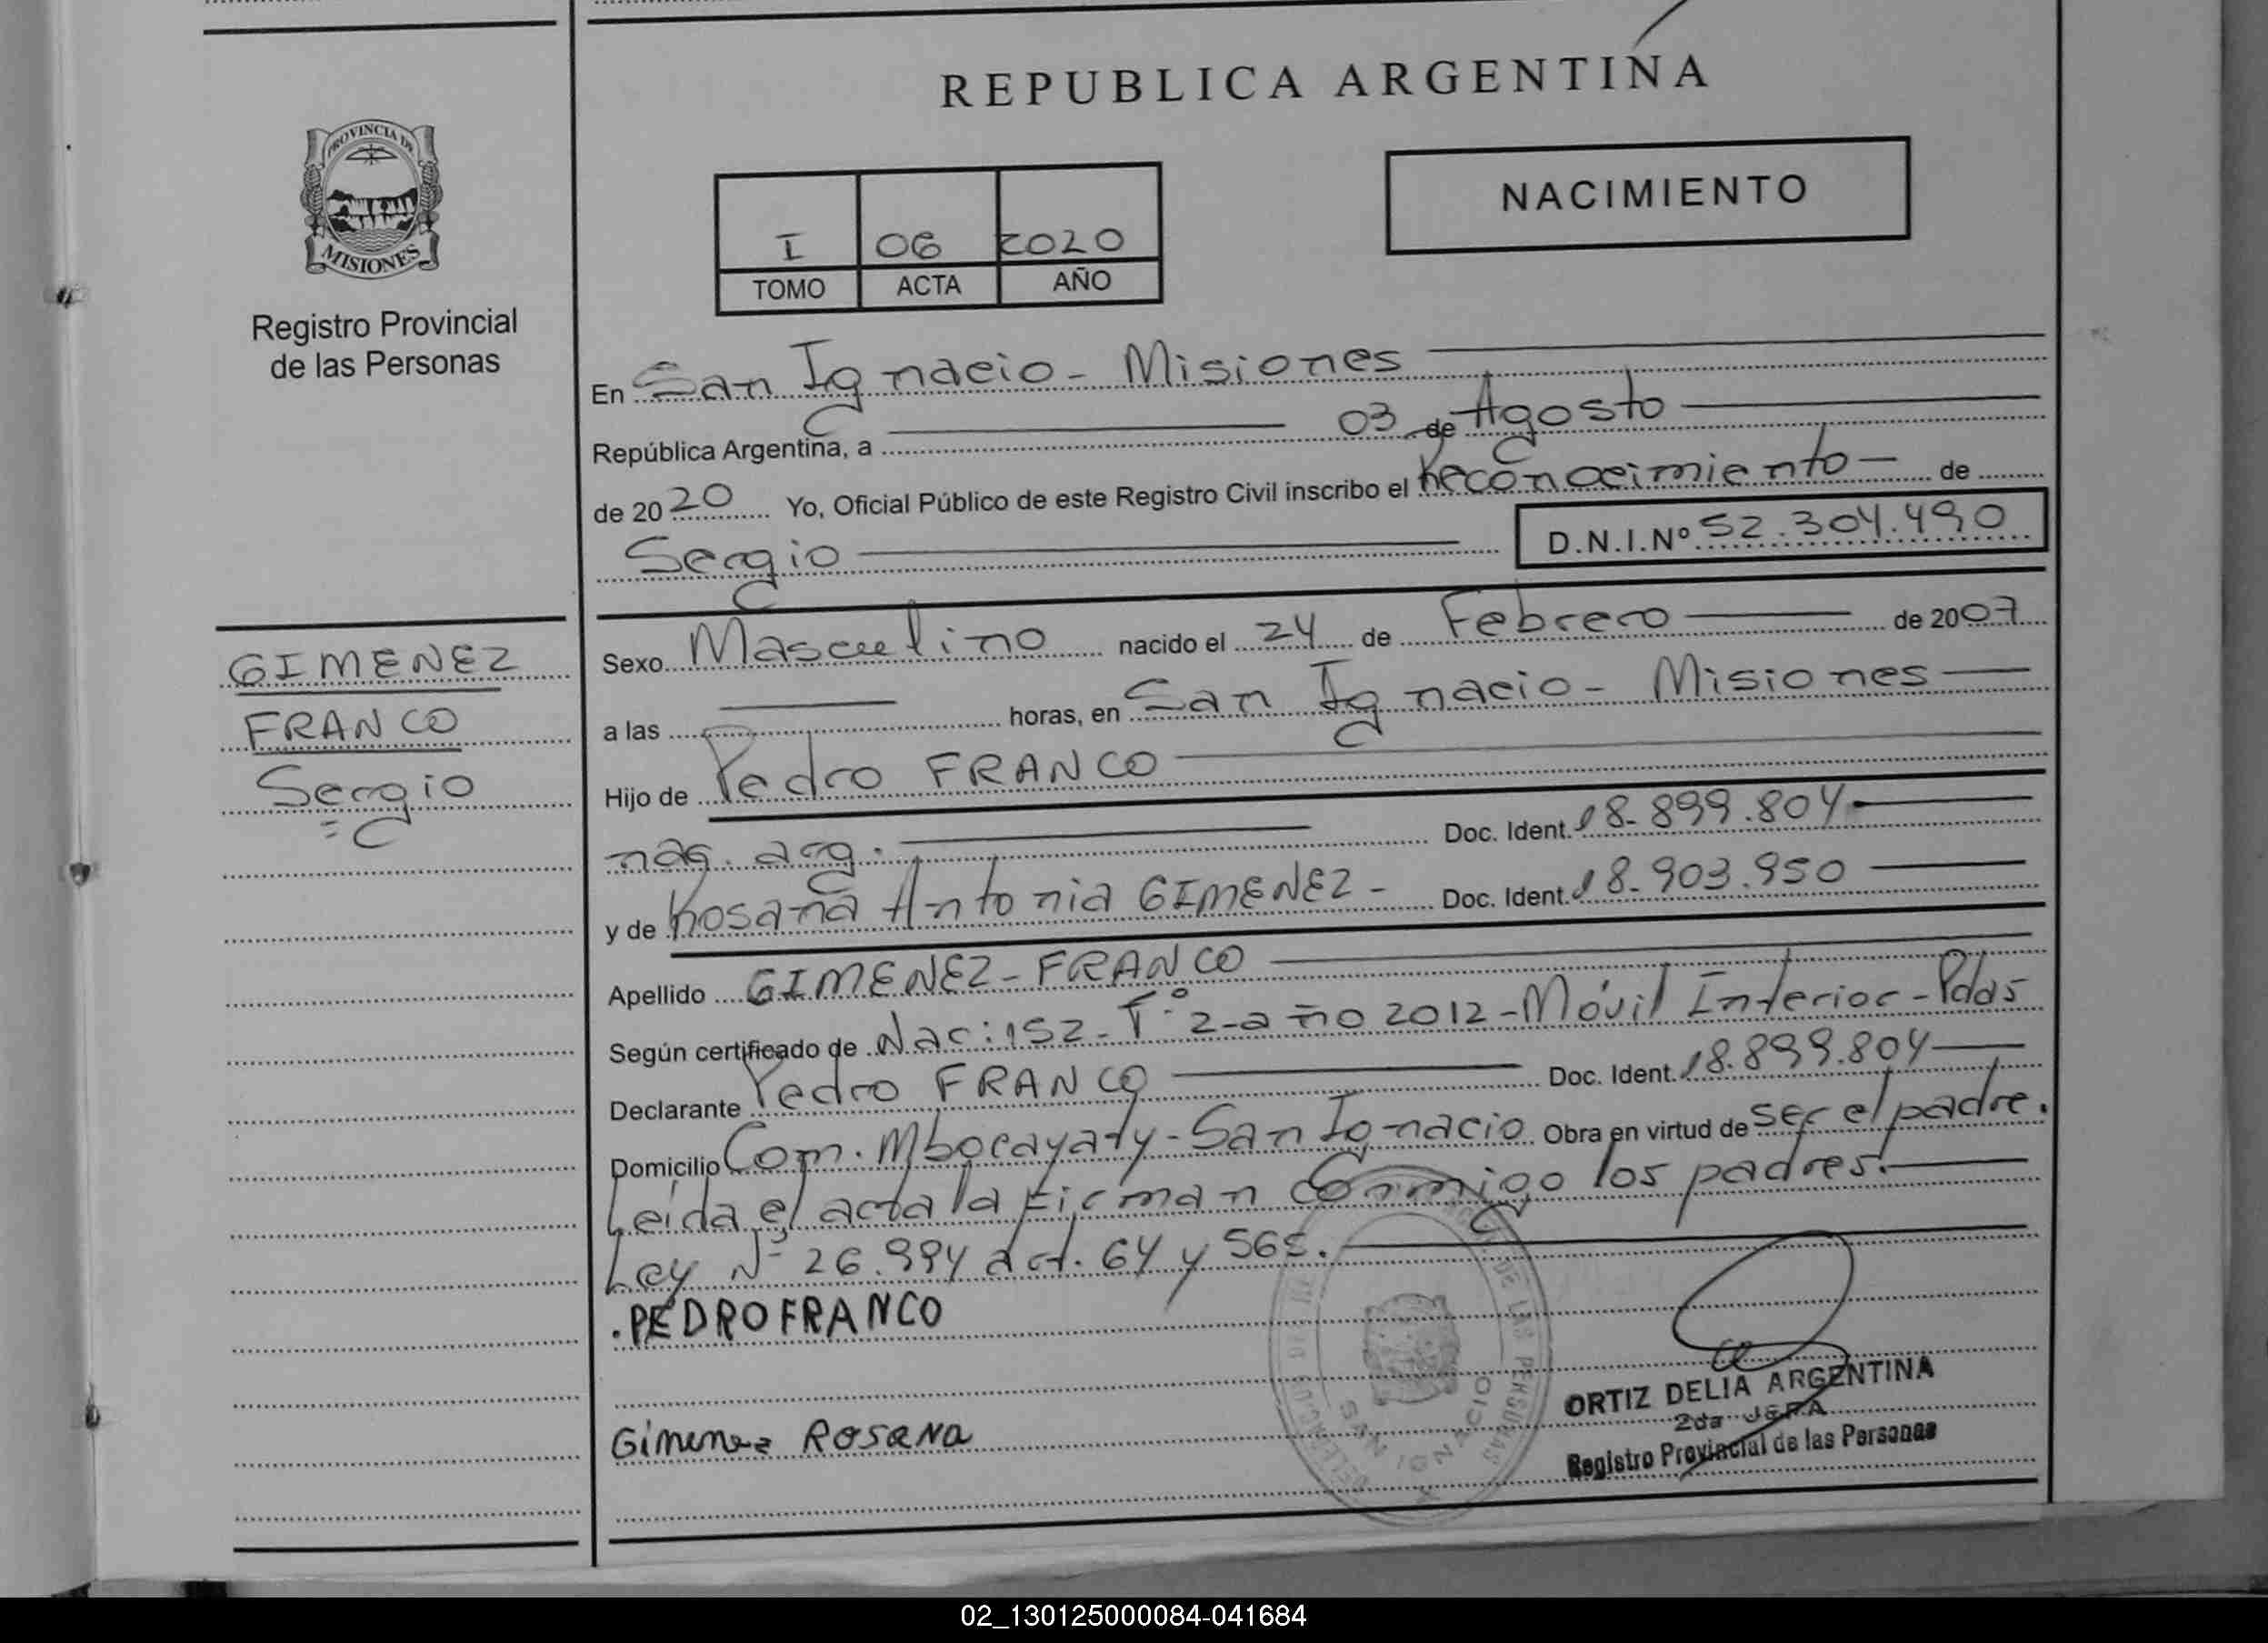 REPUBLICA ARGENTINA
PROVINCIA DE
MISIONES
Registro Provincial
de las Personas
NACIMIENTO
I 06 2020
TOMO ACTA AÑO
En San Ignacio - Misiones
República Argentina, a 03 de Agosto
de 2020 Yo, Oficial Público de este Registro Civil inscribo el Reconocimiento - de
Sergio D.N.I.Nº 52.304.490
GIMENEZ
FRANCO
Sergio
Sexo Masculino nacido el 24 de Febrero de 2007
a las horas, en San Ignacio - Misiones
Hijo de Pedro FRANCO
nac. arg. Doc. Ident. 18.899.804
y de Rosana Antonia GIMENEZ - Doc. Ident. 18.903.950
Apellido GIMENEZ - FRANCO
Según certificado de Nac: 152 - Tº 2 - año 2012 - Móvil Interior - Pdas
Declarante Pedro FRANCO Doc. Ident. 18.899.804
Domicilio Com. Mbocayaty - San Ignacio Obra en virtud de ser el padre.
Leída el acta la firman conmigo los padres.
Ley Nº 26.994 art. 64 y 565.
.PEDRO FRANCO
Gimenez Rosana
SAN IGNACIO
ORTIZ DELIA ARGENTINA
2da JEFA
Registro Provincial de las Personas
02_130125000084-041684